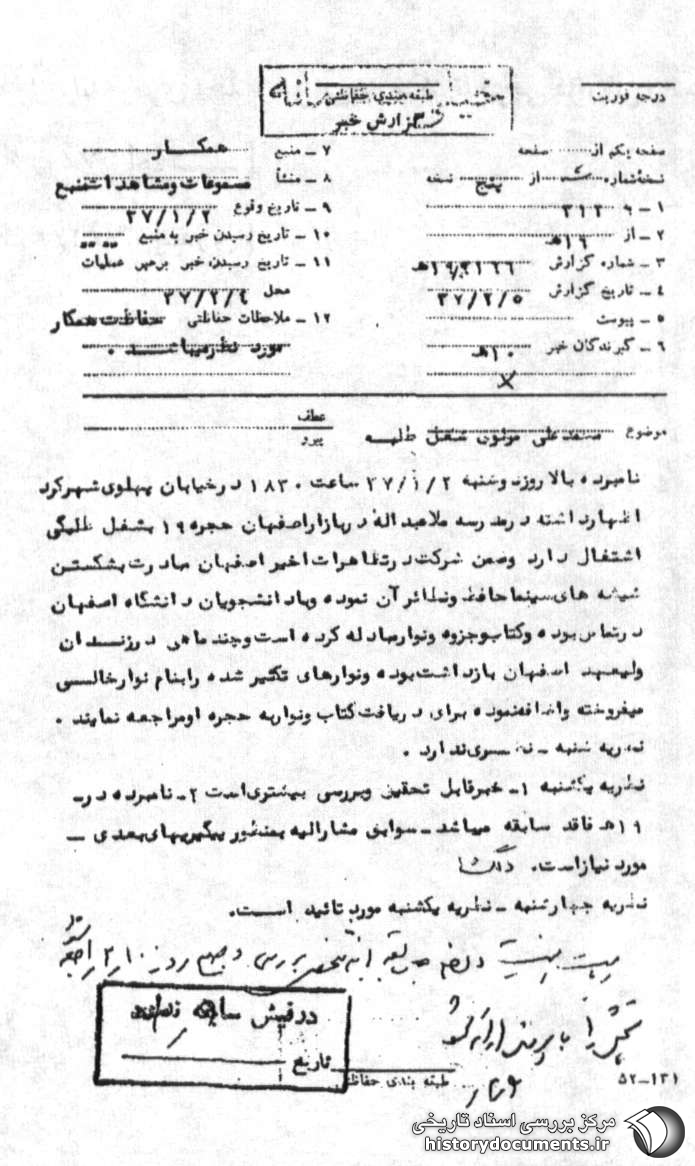 درجه فوریت
طبقه بندی حفاظتی
گزارش خبر
صفحه یکم از صفحه
نسخه شماره از پنج نسخه
۱ – به ۳۱۲
۲ – از ۱۹ هـ
۳ – شماره گزارش
۴ – تاریخ گزارش ۳۷/۲/۵
۵ – پیوست
۶ – گیرندگان خبر ۱۰ هـ
۷ – منبع همکار
۸ – منشأ مسموعات و مشاهدات منبع
۹ – تاریخ وقوع ۳۷/۱/۲
۱۰ – تاریخ رسیدن خبر به منبع
۱۱ – تاریخ رسیدن خبر برهبر عملیات
محل ۳۷/۲/۴
۱۲ – ملاحظات حفاظتی حفاظت همکار
مورد نظر میباشد .
موضوع محمدعلی مولوی شغل طلبه
عطف
پیرو
نامبرده بالا روزدوشنبه ۳۷/۱/۲ ساعت ۱۸۳۰ درخیابان پهلوی شهرکرد
اظهارداشته درمدرسه ملاعبداله دربازاراصفهان حجره ۱۹ بشغل طلبگی
اشتغال دارد وضمن شرکت درتظاهرات اخیر اصفهان مبادرت بشکستن
شیشه های سینما حافظ ونظائر آن نموده وبادانشجویان دانشگاه اصفهان
درتماس بوده وکتاب وجزوه ونوارمبادله کرده است وچند ماهی درزندان
ولیعهد اصفهان بازداشت بوده ونوارهای تکثیر شده رابنام نوارخالسی
میفروخته واضافه نموده برای دریافت کتاب ونواربه حجره اومراجعه نمایند .
نظریه شنبه – نظری ندارد .
نظریه یکشنبه ۱- خبرقابل تحقیق وبررسی بیشتری است ۲- نامبرده در-
۱۹هـ فاقد سابقه میباشد – سوابق مشارالیه بمنظور پیگیریهای بعدی –
مورد نیازاست.
نظریه چهارشنبه – نظریه یکشنبه مورد تائید است.
بررسی و
درفیش سابقه ندارد
تاریخ
طبقه بندی حفاظتی
۵۲–۱۳۱
مرکز بررسی اسناد تاریخی
historydocuments.ir